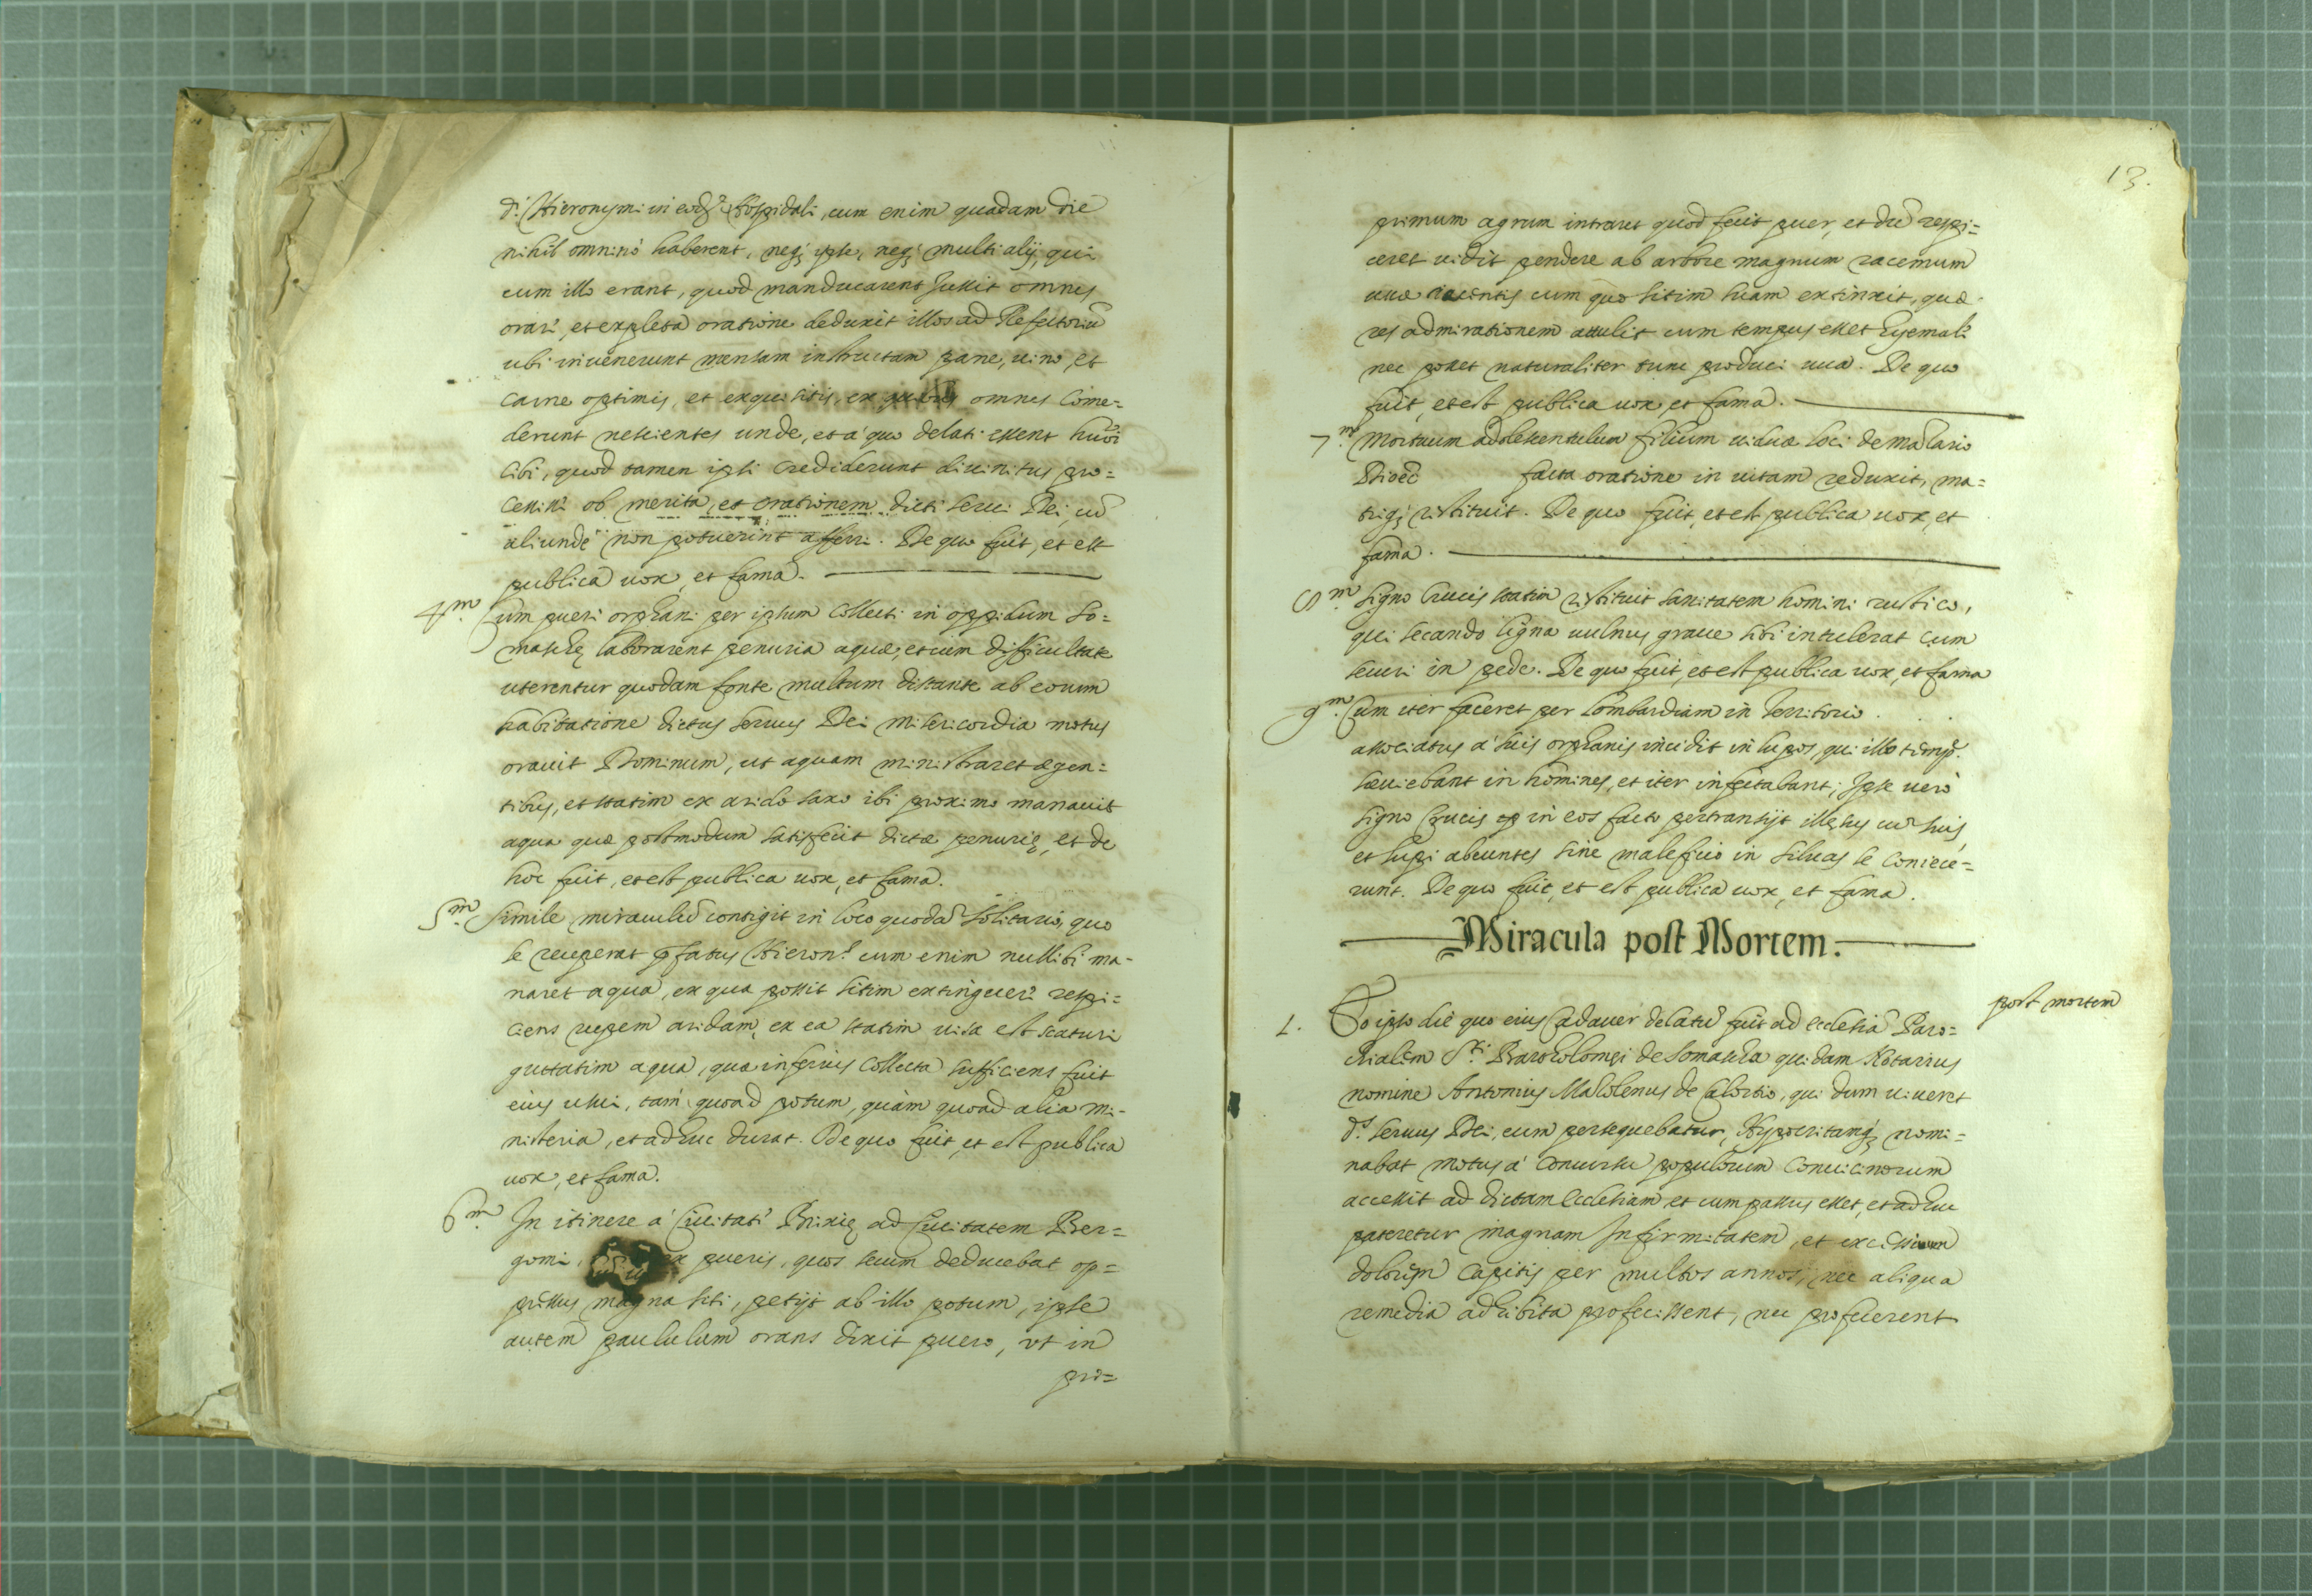 d.ⁱ Hieronymi in eod.ᵐ Hospidali, cum enim quadam die
nihil omninò haberent, neq; ipse, neq; multi alij, qui
cum illo erant, quod manducarent Jussit omnes
orare, et expleta oratione deduxit illos ad Refectoriũ
ubi invenerunt mensam instructam pane, uino, et
carne optimis, et exquisitis, ex quibus omnes Come=
derunt nescientes unde, et à quo delati essent huiõi
Cibi, quod tamen ipsi crediderunt diuinitus pro=
cessisse ob merita, et orationem dicti Serui Dei, cũ
aliunde non potuerint afferri. De quo fuit, et est
publica uox, et fama.
4.ᵐ Cum pueri orphani per ipsum Collecti in oppidum So=
maschę laborarent penuria aquæ, et cum difficultate
uterentur quodam fonte multum distante ab eorum
habitatione dictus Seruus Dei misericordia motus
orauit Dominum, ut aquam ministraret egen=
tibus, et statim ex arido saxo ibi proximo manauit
aqua quæ postmodum satisfecit dictæ penurię, et de
hoc fuit, et est publica uox, et fama.
5.ᵐ Simile miraculũ contigit in loco quodã solitario, quo
se receperat pfatus Hieron.ˢ cum enim nullibi ma=
naret aqua, ex qua possit sitim extinguere respi=
ciens rupem aridam, ex ea statim uisa est scaturi
guttatim aqua, quæ inferius Collecta sufficiens fuit
eius usui, tàm quoad potum, quàm quoad alia mi=
nisteria, et adhuc durat. De quo fuit, et est publica
uox, et fama.
6.ᵐ In itinere à Ciuitate Brixię ad Ciuitatem Ber=
gomi, ex pueris, quos secum deducebat op=
pressus magna siti, petijt ab illo potum, ipse
autem paululum orans dixit puero, vt in
pri=
13.
primum agrum intraret quod fecit puer, et dũ respi=
ceret uidit pendere ab arbore magnum racemum
uuæ recentis cum quo sitim suam extinxit, quæ
res admirationem attulit cum tempus esset hyemale
nec posset naturaliter tunc produci uua. De quo
fuit, et est publica uox, et fama.
7.ᵐ Mortuum adolescentulum filium uiduæ loci de Maslario
Diœc facta oratione in uitam reduxit, ma=
triq; restituit. De quo fuit, et est publica uox, et
fama.
8.ᵐ Signo Crucis statim restituit sanitatem homini rustico,
qui secando ligna uulnus graue sibi intulerat cum
securi in pede. De quo fuit, et est publica uox, et fama
9.ᵐ Cum iter faceret per Lombardiam in Territorio . . .
associatus à suis orphanis incidit in lupos, qui illo temp.ᵉ
sæuiebant in homines, et iter infestabant; Ipse uerò
signo Crucis in eos facto pertransijt illęsus cũ suis,
et lupi abeuntes sine maleficio in siluas se coniece=
runt. De quo fuit, et est publica uox, et fama.
Miracula post Mortem.
post mortem
1. Eo ipso die quo eius Cadauer delatũ fuit ad ecclesiã Paro=
chialem S.ᵗⁱ Bartholomęi de Somascha quidam Notarius
nomine Antonius Mazolenus de Calolzio, qui dum uiueret
d.ˢ Seruus Dei, eum persequebatur, Hypocritamq; nomi=
nabat motus à concursu populorum conuicinorum
accessit ad dictam ecclesiam et cum passus esset, et adhuc
pateretur magnam Infirmitatem, et excessiuum
dolorem Capitis per multos annos, nec aliqua
remedia adhibita profecissent, nec proficerent